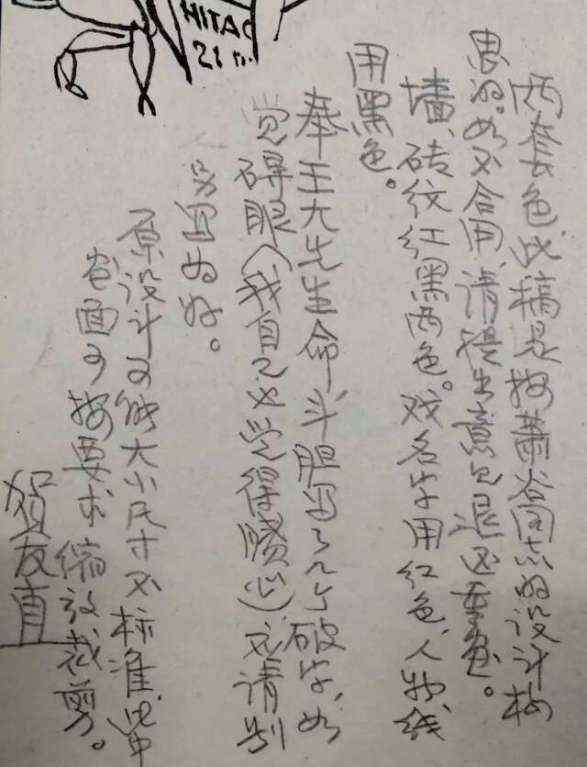 HITAC
21
两套色，此稿是按萧谷同志的设计构
思的。如不合用，请提出意见退还重画。
墙、砖纹红黑两色。戏名字用红色，人物线
用黑色。
奉王大先生命斗胆写了几个破字，如
觉碍眼（我自己也觉得腻心）请别
写为好。
原设计可能大小尺寸不标准，
画面可按要求缩放裁剪。
贺友直